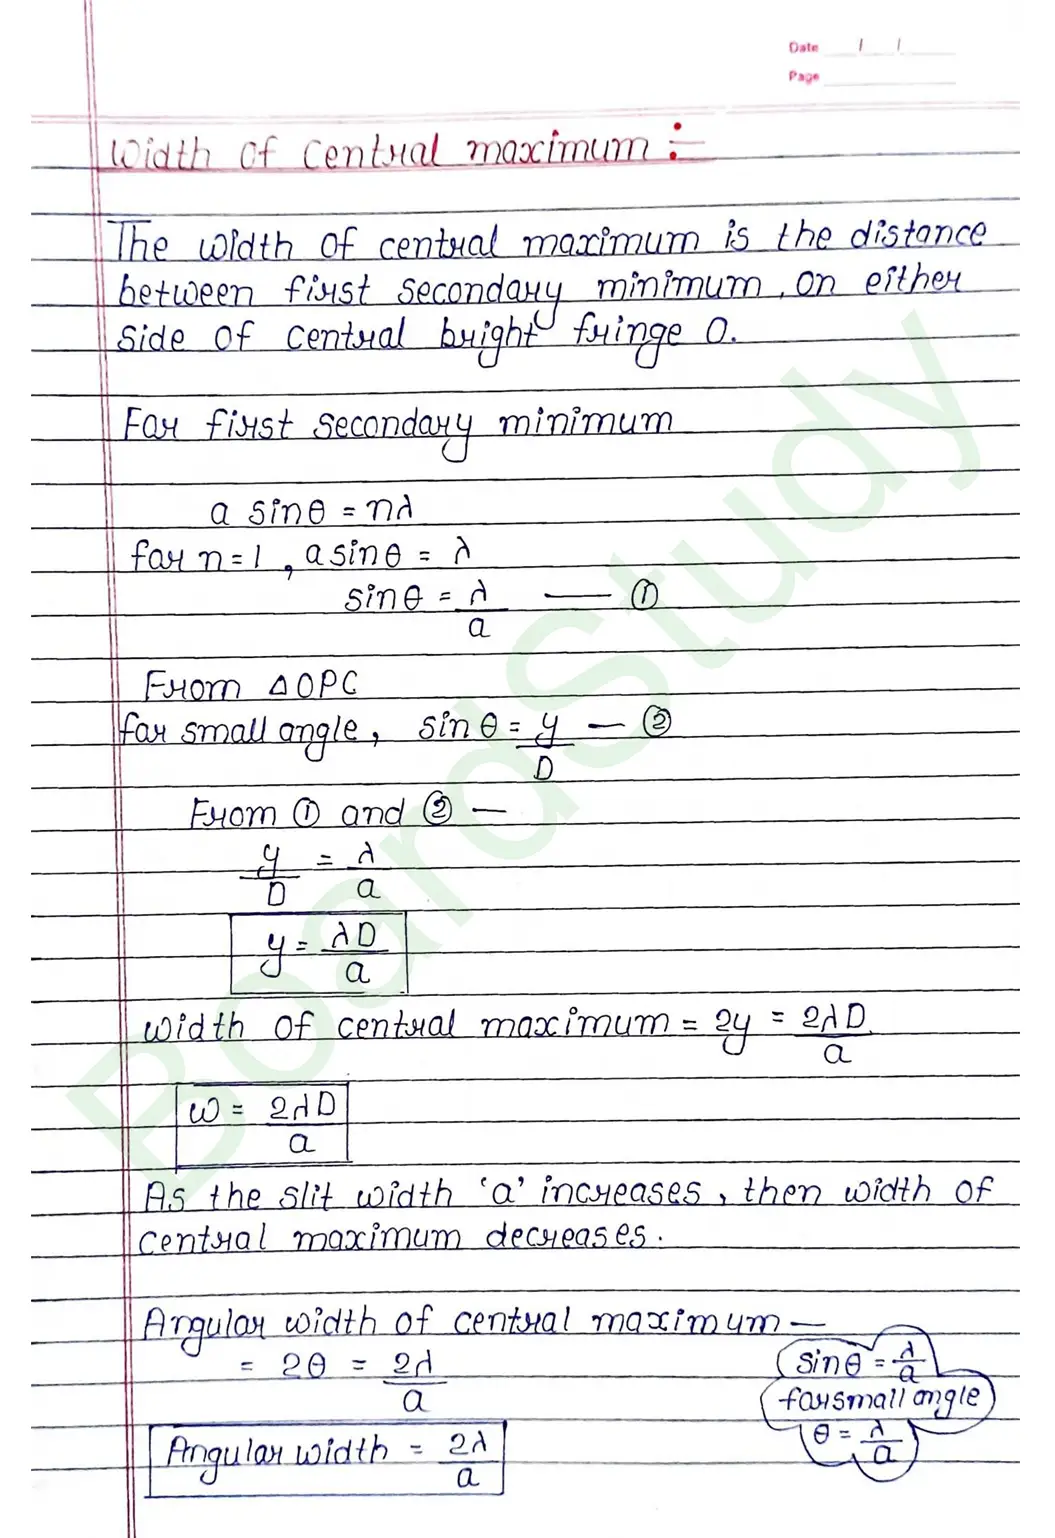 Date / /
Page
Width of central maximum :-
The width of central maximum is the distance
between first secondary minimum, on either
side of central bright fringe O.
For first secondary minimum
a sinθ = nλ
for n=1, a sinθ = λ
sinθ = λ/a — ①
From △OPC
for small angle, sinθ = y/D — ②
From ① and ② —
y/D = λ/a
y = λD/a
width of central maximum = 2y = 2λD/a
w = 2λD/a
As the slit width 'a' increases, then width of
central maximum decreases.
Angular width of central maximum —
= 2θ = 2λ/a
sinθ = λ/a
for small angle
θ = λ/a
Angular width = 2λ/a
BoardStudy